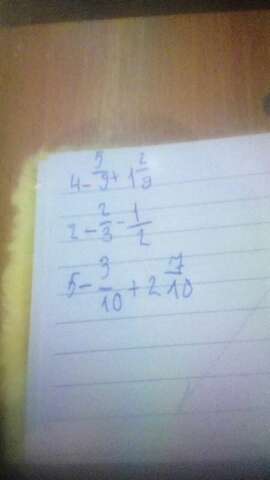 4 - 5/9 + 1 2/9
2 - 2/3 - 1/2
5 - 3/10 + 2 7/10